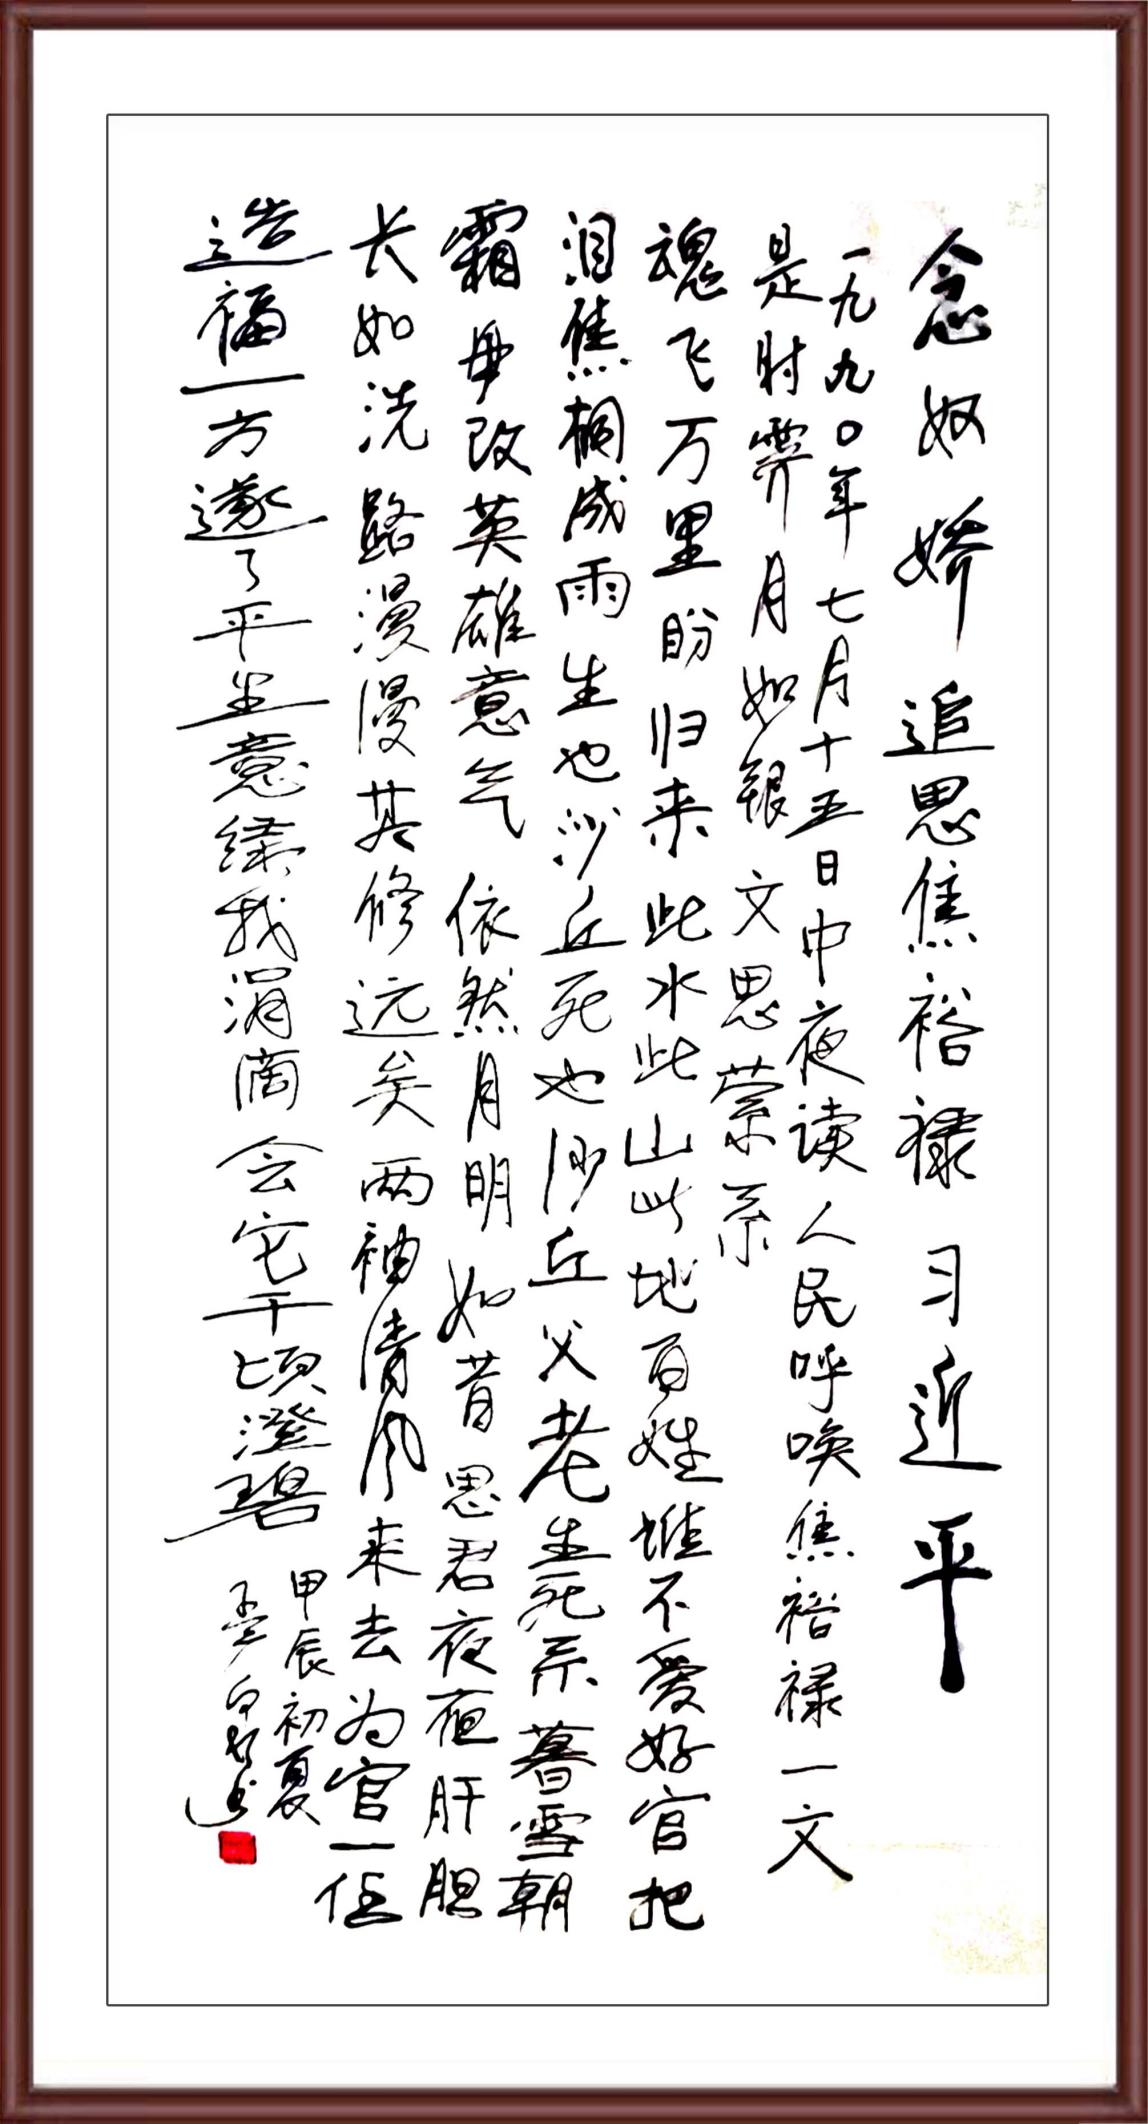 念奴娇 追思焦裕禄 习近平
一九九〇年七月十五日中夜读人民呼唤焦裕禄一文
是时霁月如银 文思萦系
魂飞万里盼归来此水此山此地百姓谁不爱好官把
泪焦桐成雨生也沙丘死也沙丘父老生死系暮雪朝
霜毋改英雄意气 依然月明如昔思君夜夜肝胆
长如洗路漫漫其修远矣两袖清风来去为官一任
造福一方遂了平生意绿我涓滴会它千顷澄碧
甲辰初夏